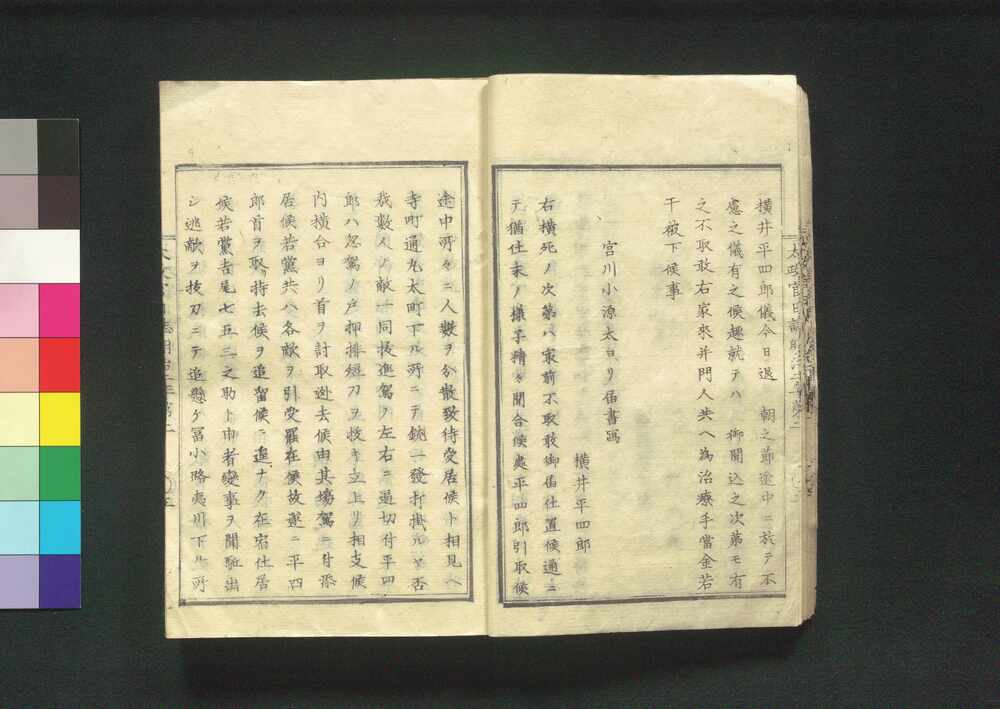 横井平四郎儀今日退　朝之節途中ニ於テ不
慮之儀有之候趣就テハ　御聞込之次第モ有
之不取敢右家來并門人共へ為治療手當金若
干被下候事
宮川小源太ヨリ届書写
横井平四郎
右横死ノ次第ハ最前不取敢御届仕置候通ニ
テ猶仕末ノ様子精々聞合候処平四郎引取候
途中所々ニ人数ヲ分散致待受居候ト相見ヘ
寺町通丸太町下ル所ニテ銃一發打掛ルヤ否
哉数人ノ敵一同抜連駕ノ左右ニ迫切付平四
郎ハ忽駕ノ戸押排短刀ヲ抜キ立上リ相支候
内横合ヨリ首ヲ討取迯去候由其場駕ニ付添
居候若黨共ハ各敵ヲ引受罷在候故遂ニ平四
郎首ヲ取持去候ヲ追留候ニ遑ナク在宿仕居
候若黨吉尾七五三之助ト申者變事ヲ聞駈出
シ逃敵ヲ抜刀ニテ追懸ケ冨小路夷川下ル所